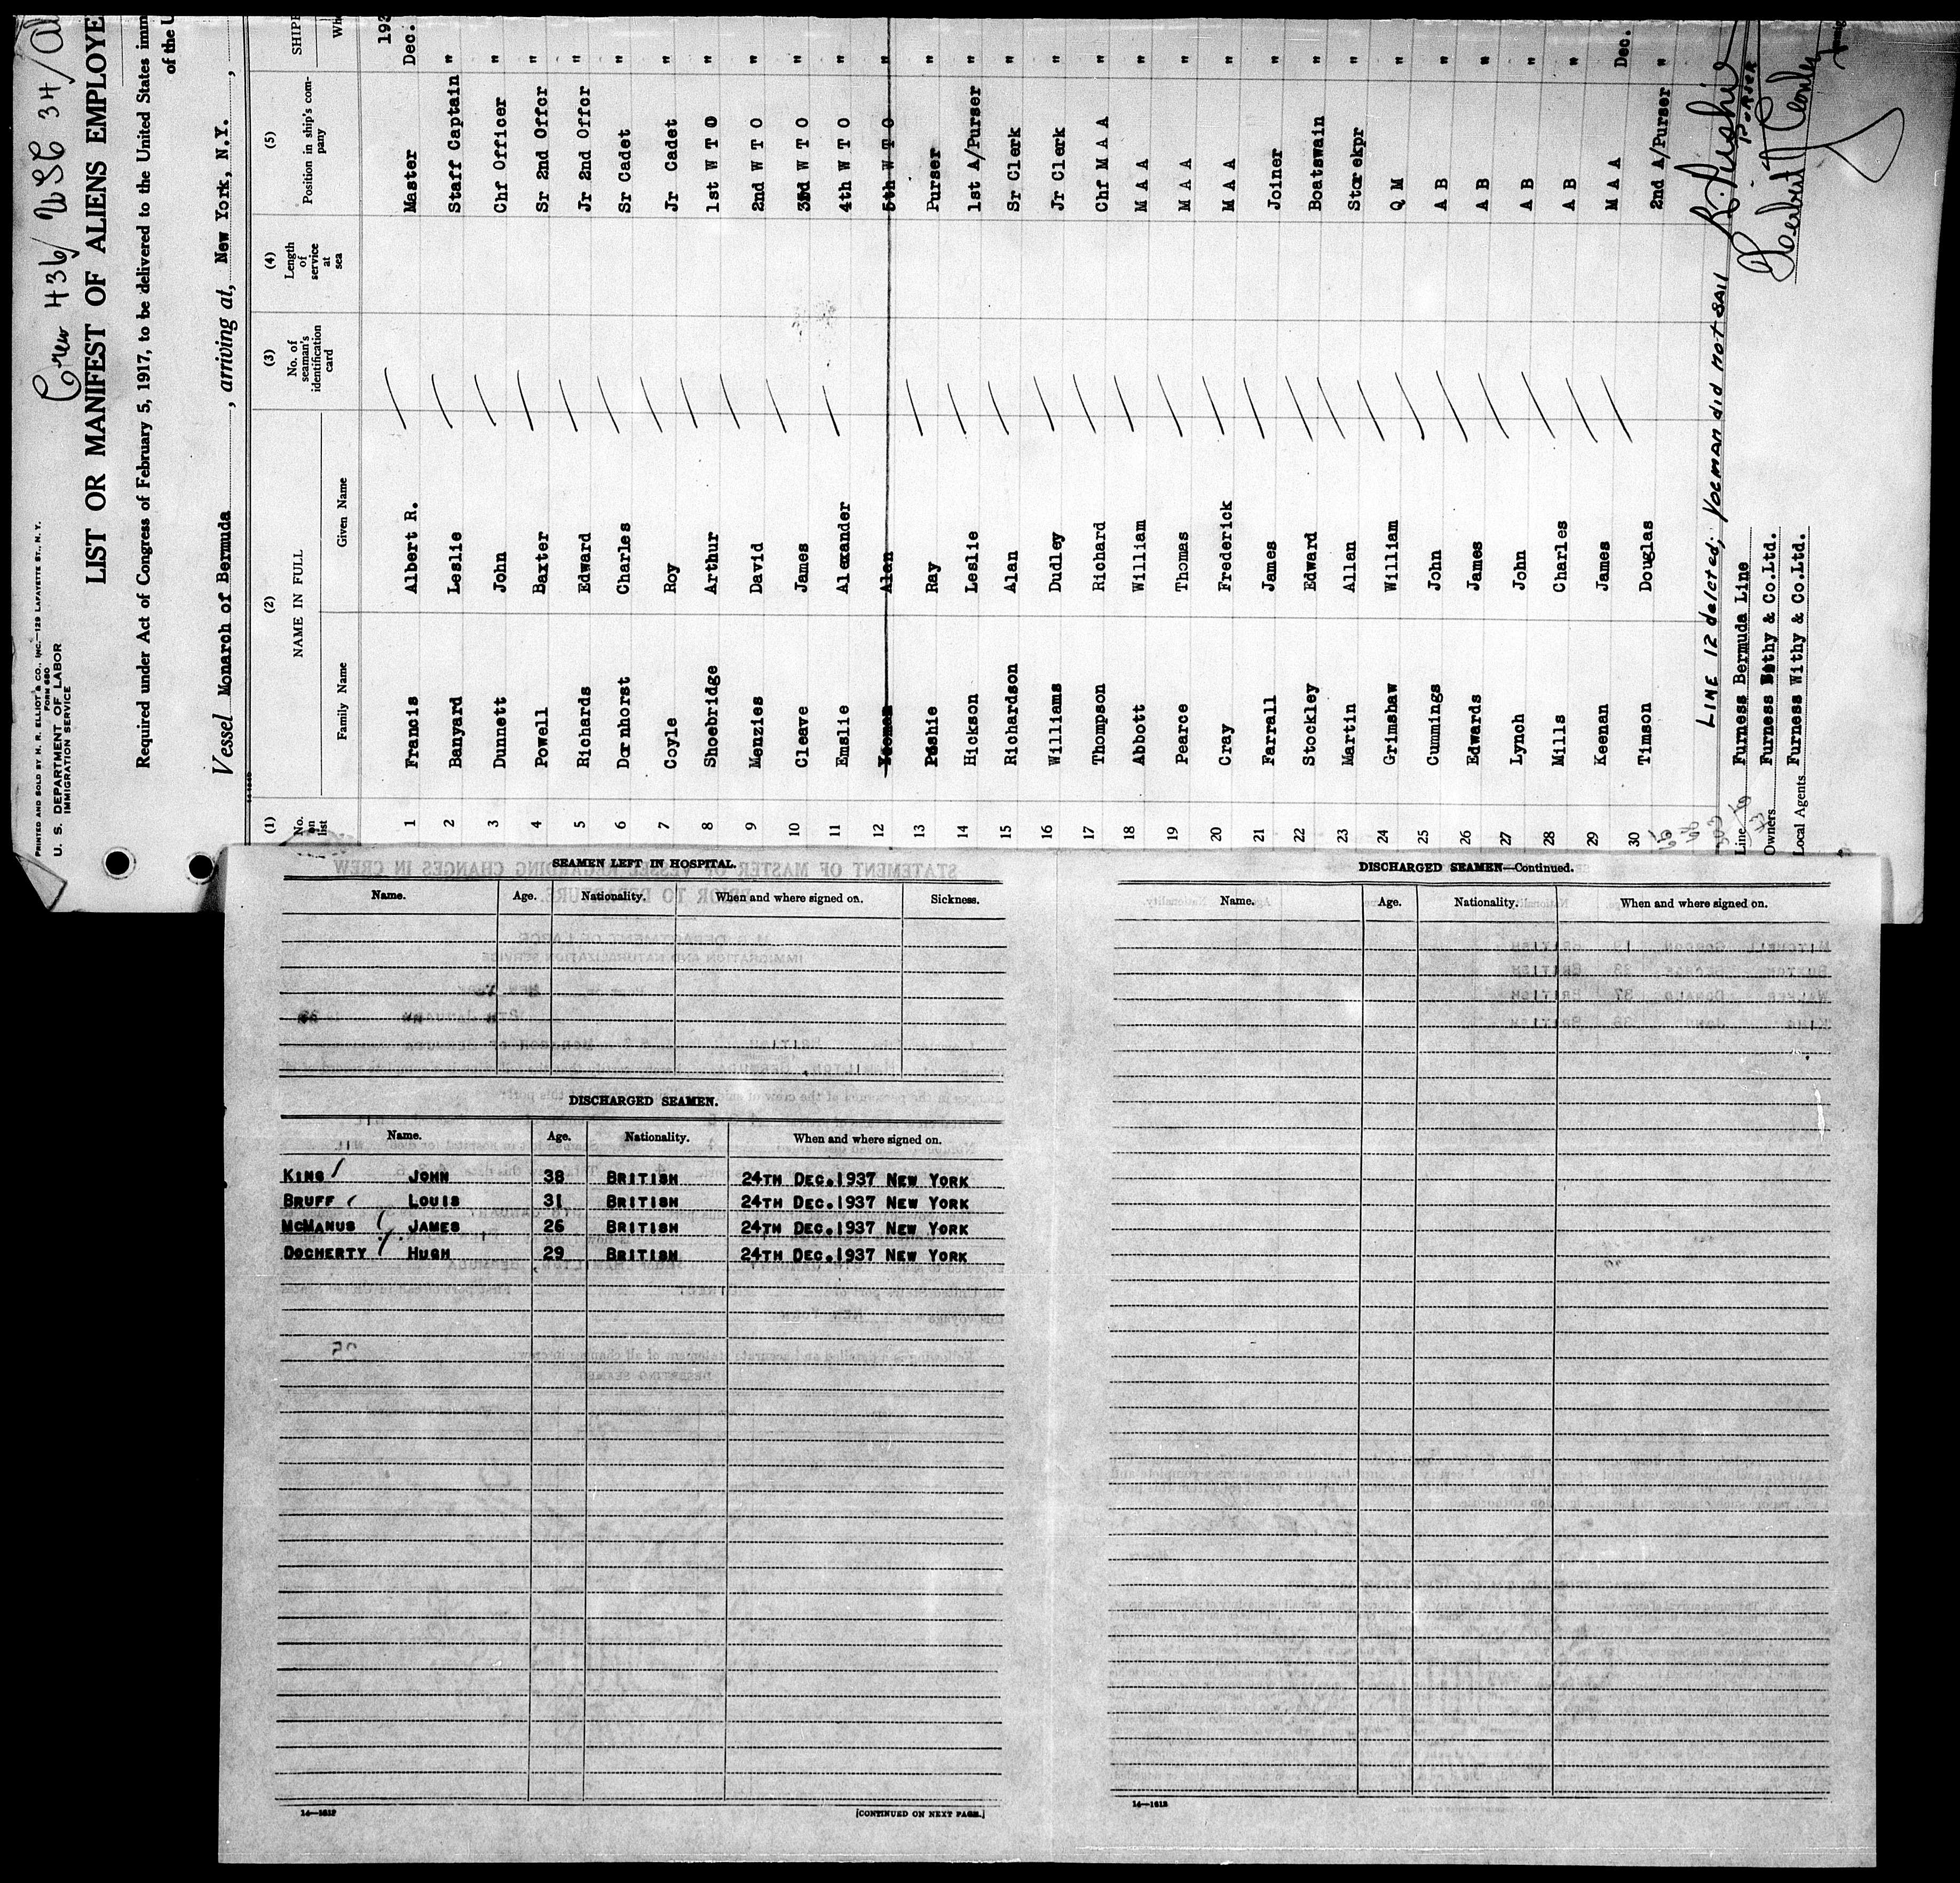 Crew 436/ WSC 34/
PRINTED AND SOLD BY H. R. ELLIOT & CO., INC.—129 LAFAYETTE ST., N. Y.
FORM 680
U. S. DEPARTMENT OF LABOR
IMMIGRATION SERVICE
LIST OR MANIFEST OF ALIENS EMPLOYE
Required under Act of Congress of February 5, 1917, to be delivered to the United States imm
of the U
Vessel Monarch of Bermuda, arriving at, New York, N.Y.,
(1) (2) (3) (4) (5)
No. on list NAME IN FULL No. of seaman's identification card Length of service at sea Position in ship's company SHIP
Family Name Given Name Wh
193
1 Francis Albert R. Master Dec.
2 Banyard Leslie Staff Captain "
3 Dunnett John Chf Officer "
4 Powell Baxter Sr 2nd Offcr "
5 Richards Edward Jr 2nd Offcr "
6 Dornhorst Charles Sr Cadet "
7 Coyle Roy Jr Cadet "
8 Shoebridge Arthur 1st W T O "
9 Menzies David 2nd W T O "
10 Cleave James 3rd W T O "
11 Emslie Alexander 4th W T O "
12 Yoeman Alan 5th W T O "
13 Pushie Ray Purser "
14 Hickson Leslie 1st A/Purser "
15 Richardson Alan Sr Clerk "
16 Williams Dudley Jr Clerk "
17 Thompson Richard Chf M A A "
18 Abbott William M A A "
19 Pearce Thomas M A A "
20 Cray Frederick M A A "
21 Farrall James Joiner "
22 Stockley Edward Boatswain "
23 Martin Allan Storekpr "
24 Grimshaw William Q M "
25 Cummings John A B "
26 Edwards James A B "
27 Lynch John A B "
28 Mills Charles A B "
29 Keenan James M A A Dec.
30 Timson Douglas 2nd A/Purser "
LINE 12 deleted; YOEMAN did not SAIL R. Pushie
PURSER
Line Furness Bermuda Line
Owners Furness Withy & Co.Ltd.
Local Agents Furness Withy & Co.Ltd.
SEAMEN LEFT IN HOSPITAL.
Name. Age. Nationality. When and where signed on. Sickness.
DISCHARGED SEAMEN.
Name. Age. Nationality. When and where signed on.
KING JOHN 38 BRITISH 24TH DEC.1937 NEW YORK
BRUFF LOUIS 31 BRITISH 24TH DEC.1937 NEW YORK
MCMANUS JAMES 26 BRITISH 24TH DEC.1937 NEW YORK
DOCHERTY HUGH 29 BRITISH 24TH DEC.1937 NEW YORK
14—1612 [CONTINUED ON NEXT PAGE.]
DISCHARGED SEAMEN—Continued.
Name. Age. Nationality. When and where signed on.
14—1612